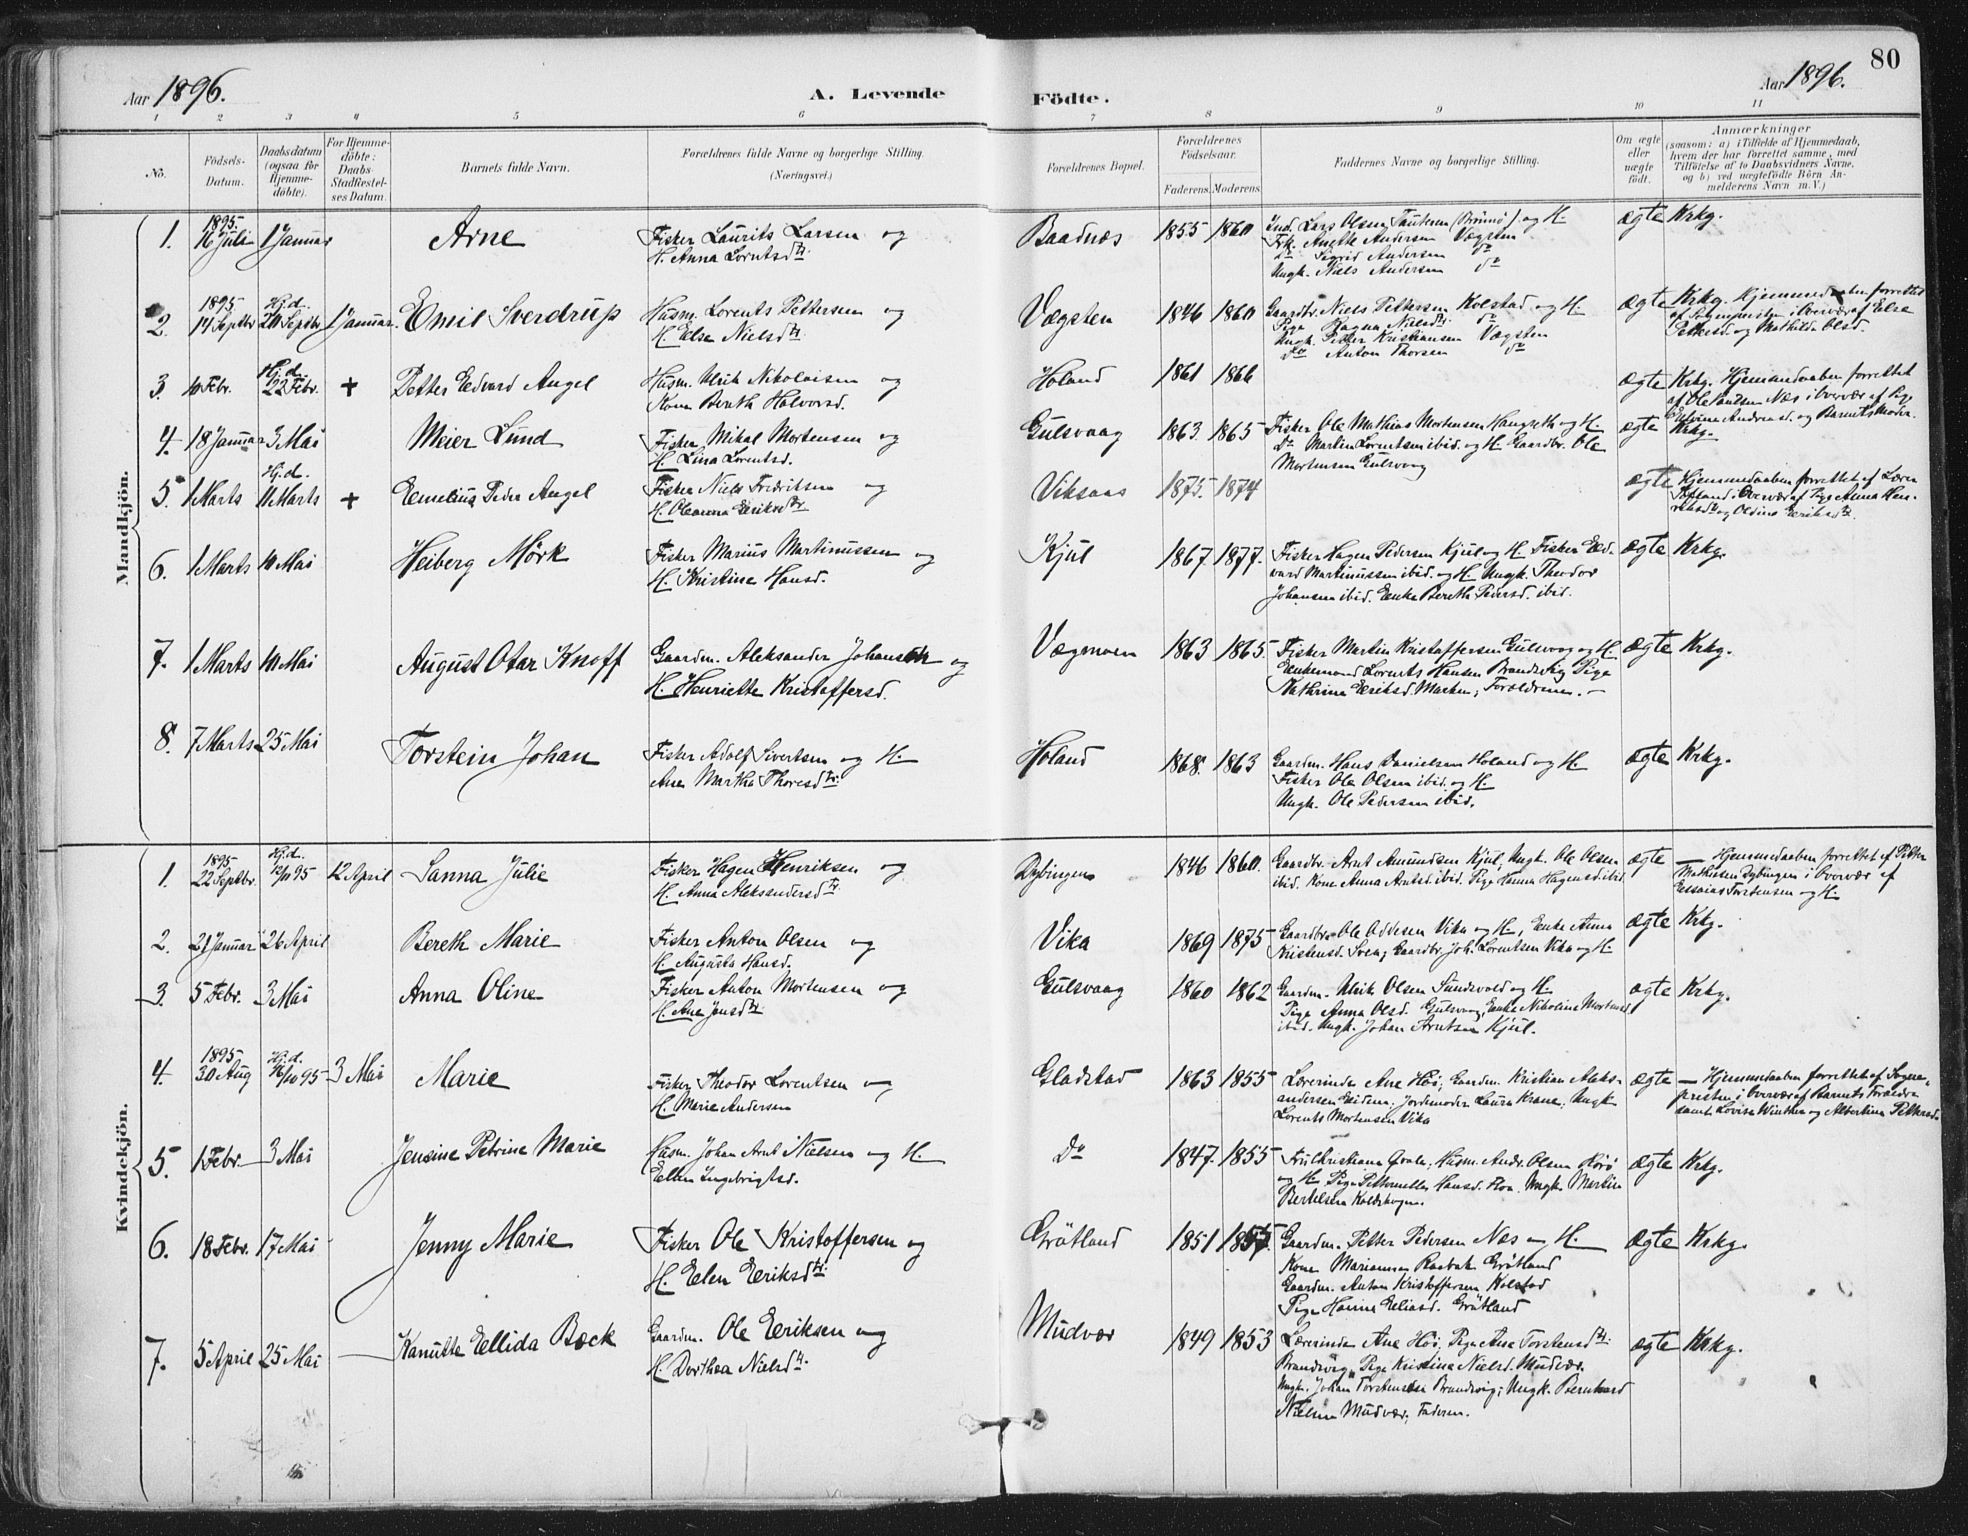 80
Aar 1896.
A. Levende Födte.
Aar 1896.
1 2 3 4 5 6 7 8 9 10 11
No.
Födsels-Datum.
Daabsdatum (ogsaa for Hjemmedöbte).
For Hjemmedöbte: Daabs-Stadfæstelses Datum.
Barnets fulde Navn.
Forældrenes fulde Navne og borgerlige Stilling. (Næringsvei.)
Forældrenes Bopæl.
Forældrenes Födselsaar.
Faderens. Moderens.
Faddernes Navne og borgerlige Stilling.
Om ægte eller uægte födt.
Anmærkninger (saasom: a) i Tilfælde af Hjemmedaab, hvem der har forrettet samme, med Tilföielse af to Daabsvidners Navne, og b) ved uægtefödte Börn Anmelderens Navn m. V.)
Mandkjön.
1. 1895. 16 Juli 1 Januar Arne
Fisker Laurits Larsen og
H. Anna Lorntsdtr.
Baadnæs 1855 1860
Ind. Lars Olsen Tauteren (Brönnö) og H.
Frk. Anette Andersen Vægsten
Do Sigrid Andersen do
Ungk. Niels Andersen do
ægte Krkg.
2. 1895 14 Septbr Hj.d. 20 Septbr 1 Januar. Emil Sverdrup
Husm. Lorents Pettersen og
H. Else Nielsdtr.
Vægsten 1846 1860
Gaardbr. Niels Pettersen Kolstad og H.
Pige Ragna Nielsdtr. do
Ungk. Peter Kristiansen Vægsten
do Anton Thorsen do
ægte Krkg. Hjemmedaaben forrettet
af Sogneprsten i Overvær af Else
Pettersd. og Mathilde Olsd.
3. 10 Febr. Hj.d. 22 Febr. + Petter Edvard Angel
Husm. Ulrik Nikolaisen og
Kone Bereth Halvorsd.
Holand 1861 1866
ægte Krkg. Hjemmedaaben forrettet
af Ole Paulsen Næs i Overvær af Pige
Andreasd. og Barnets Moder.
4. 18 Januar 3 Mai Meier Lund
Fisker Mikal Mortensen og
H. Lina Lorentsd.
Gulsvaag 1863. 1865
Fisker Ole Mathias Mortensen og H.
Do Martin Lorentsen ibid. og H. Gaardbr. Ole
Mortensen Gulsvaag
ægte Krkg.
5. 1 Marts Hj.d. 11 Marts + Emelius Peder Angel
Fisker Niels Fredriksen og
H. Oleanna Eriksdtr.
Viksaas 1875. 1874
ægte Hjemmedaaben forrettet af Lærer
i Overvær af Pige Anna Hen-
riksdtr og Oldine Eriksdtr.
6. 1 Marts 10 Mai Heiberg Mörk
Fisker Marius Martinussen og
H. Kristine Hansd.
Kjul 1867. 1877.
Fisker Hagen Pedersen Kjul og H. Fisker Ed-
vard Martinussen ibid. og H. Ungk. Theodor
Johansen ibid. Enke Bereth Pedersd. ibid.
ægte Krkg.
7. 1 Marts 10 Mai August Otar Knoff
Gaardm. Aleksander Johansen og
H. Henriette Kristoffersd.
Vægmoen 1863 1865.
Fisker Martin Kristoffersen Gulsvaag og H.
Enkemand Lorents Hansen Brandsvig Pige
Kathrine Eriksd. Marken; Forældrene.
ægte Krkg.
8. 7 Marts 25 Mai Torstein Johan
Fisker Adolf Sivertsen og H.
Ane Martha Thoresdtr.
Holand 1868. 1863
Gaardm. Hans Danielsen Holand og H.
Fisker Ole Olsen ibid. og H.
Ungk. Ole Pedersen ibid.
ægte Krkg.
Kvindekjön.
1. 1895 22 Septbr. Hj.d. 12/11 95 12 April Sanna Julie
Fisker Hagen Henriksen og
H. Anna Aleksandersdtr.
Dybingen 1846 1860.
Gaardbr. Arnt Amundsen Kjul, Ungk. Ole Olsen
ibid. Kone Anna Arntsd. ibid. Pige Hanna Hagensd. ibid
ægte — Hjemmedaaben forrettet af Petter
Mathisen Dybingen i Overvær af
Essaias Torstensen og H.
2. 21 Januar 26 April Bereth Marie
Fisker Anton Olsen og
H. Augusta Hansd.
Vika 1869 1875
Gaardbr. Ole Oddesen Vika og H., Enke Anna
Kristensd. Gaardbr. Joh. Lorentsen Vika og H
ægte Krkg.
3. 5 Febr. 3 Mai Anna Oline
Fisker Anton Mortensen og
H. Ane Jensdtr.
Gulsvaag 1860 1862
Gaardm. Ulrik Olsen Sundsvold og H.
Pige Anna Olsd. Gulsvaag, Enke Nikoline Mortensd
ibid. Ungk. Johan Arntsen Kjul.
ægte Krkg.
4. 1895 30 Aug Hj.d. 16/10 95 3 Mai Marie
Fisker Theodor Lorentsen og
H. Marie Andersen
Gladstad 1863 1855
Lærerinde Ane Höi; Gaardm. Kristian Aleks-
andersen Eidem. Jordemoder Laura Krane; Ungk.
Lorents Mortensen Vika
ægte — Hjemmedaaben forrettet af Sogne-
presten i Overvær af Barnets Forældre
samt Lovise Winther og Albertina Pettersd.
5. 1 Febr. 3 Mai Jensine Petrine Marie
Husm. Johan Arnt Nielsen og H.
Ellen Ingebrigtsd.
Do 1847. 1855
Fru Christiane Qvale; Husm. Andr. Olsen
og H. Pige Petternelle Hansd. Floa. Ungk. Martin
Bertelsen
ægte Krkg.
6. 18 Febr. 17 Mai Jenny Marie
Fisker Ole Kristoffersen og
H. Elen Eriksdtr.
Grötland 1851 1857.
Gaardm. Petter Pedersen Næs og H.
Kone Marianna Raabak Grötland
Gaardm. Anton Kristoffersen Kolstad
Pige Hanna Eliasd. Grötland
ægte Krkg.
7. 5 April 25 Mai — Kanutte Ellida Bæck
Gaardm. Ole Eriksen og
H. Dorthea Nielsdtr.
Mudvær 1849 1853
Lærerinde Ane Höi, Pige Ane Torstensdtr.
Brandsvig, Pige Kristine Nielsd. Mudvær.
Ungk. Johan Torstensen Brandsvig; Ungk. Bernhard
Nielsen Mudvær, Faderen.
ægte Krkg.